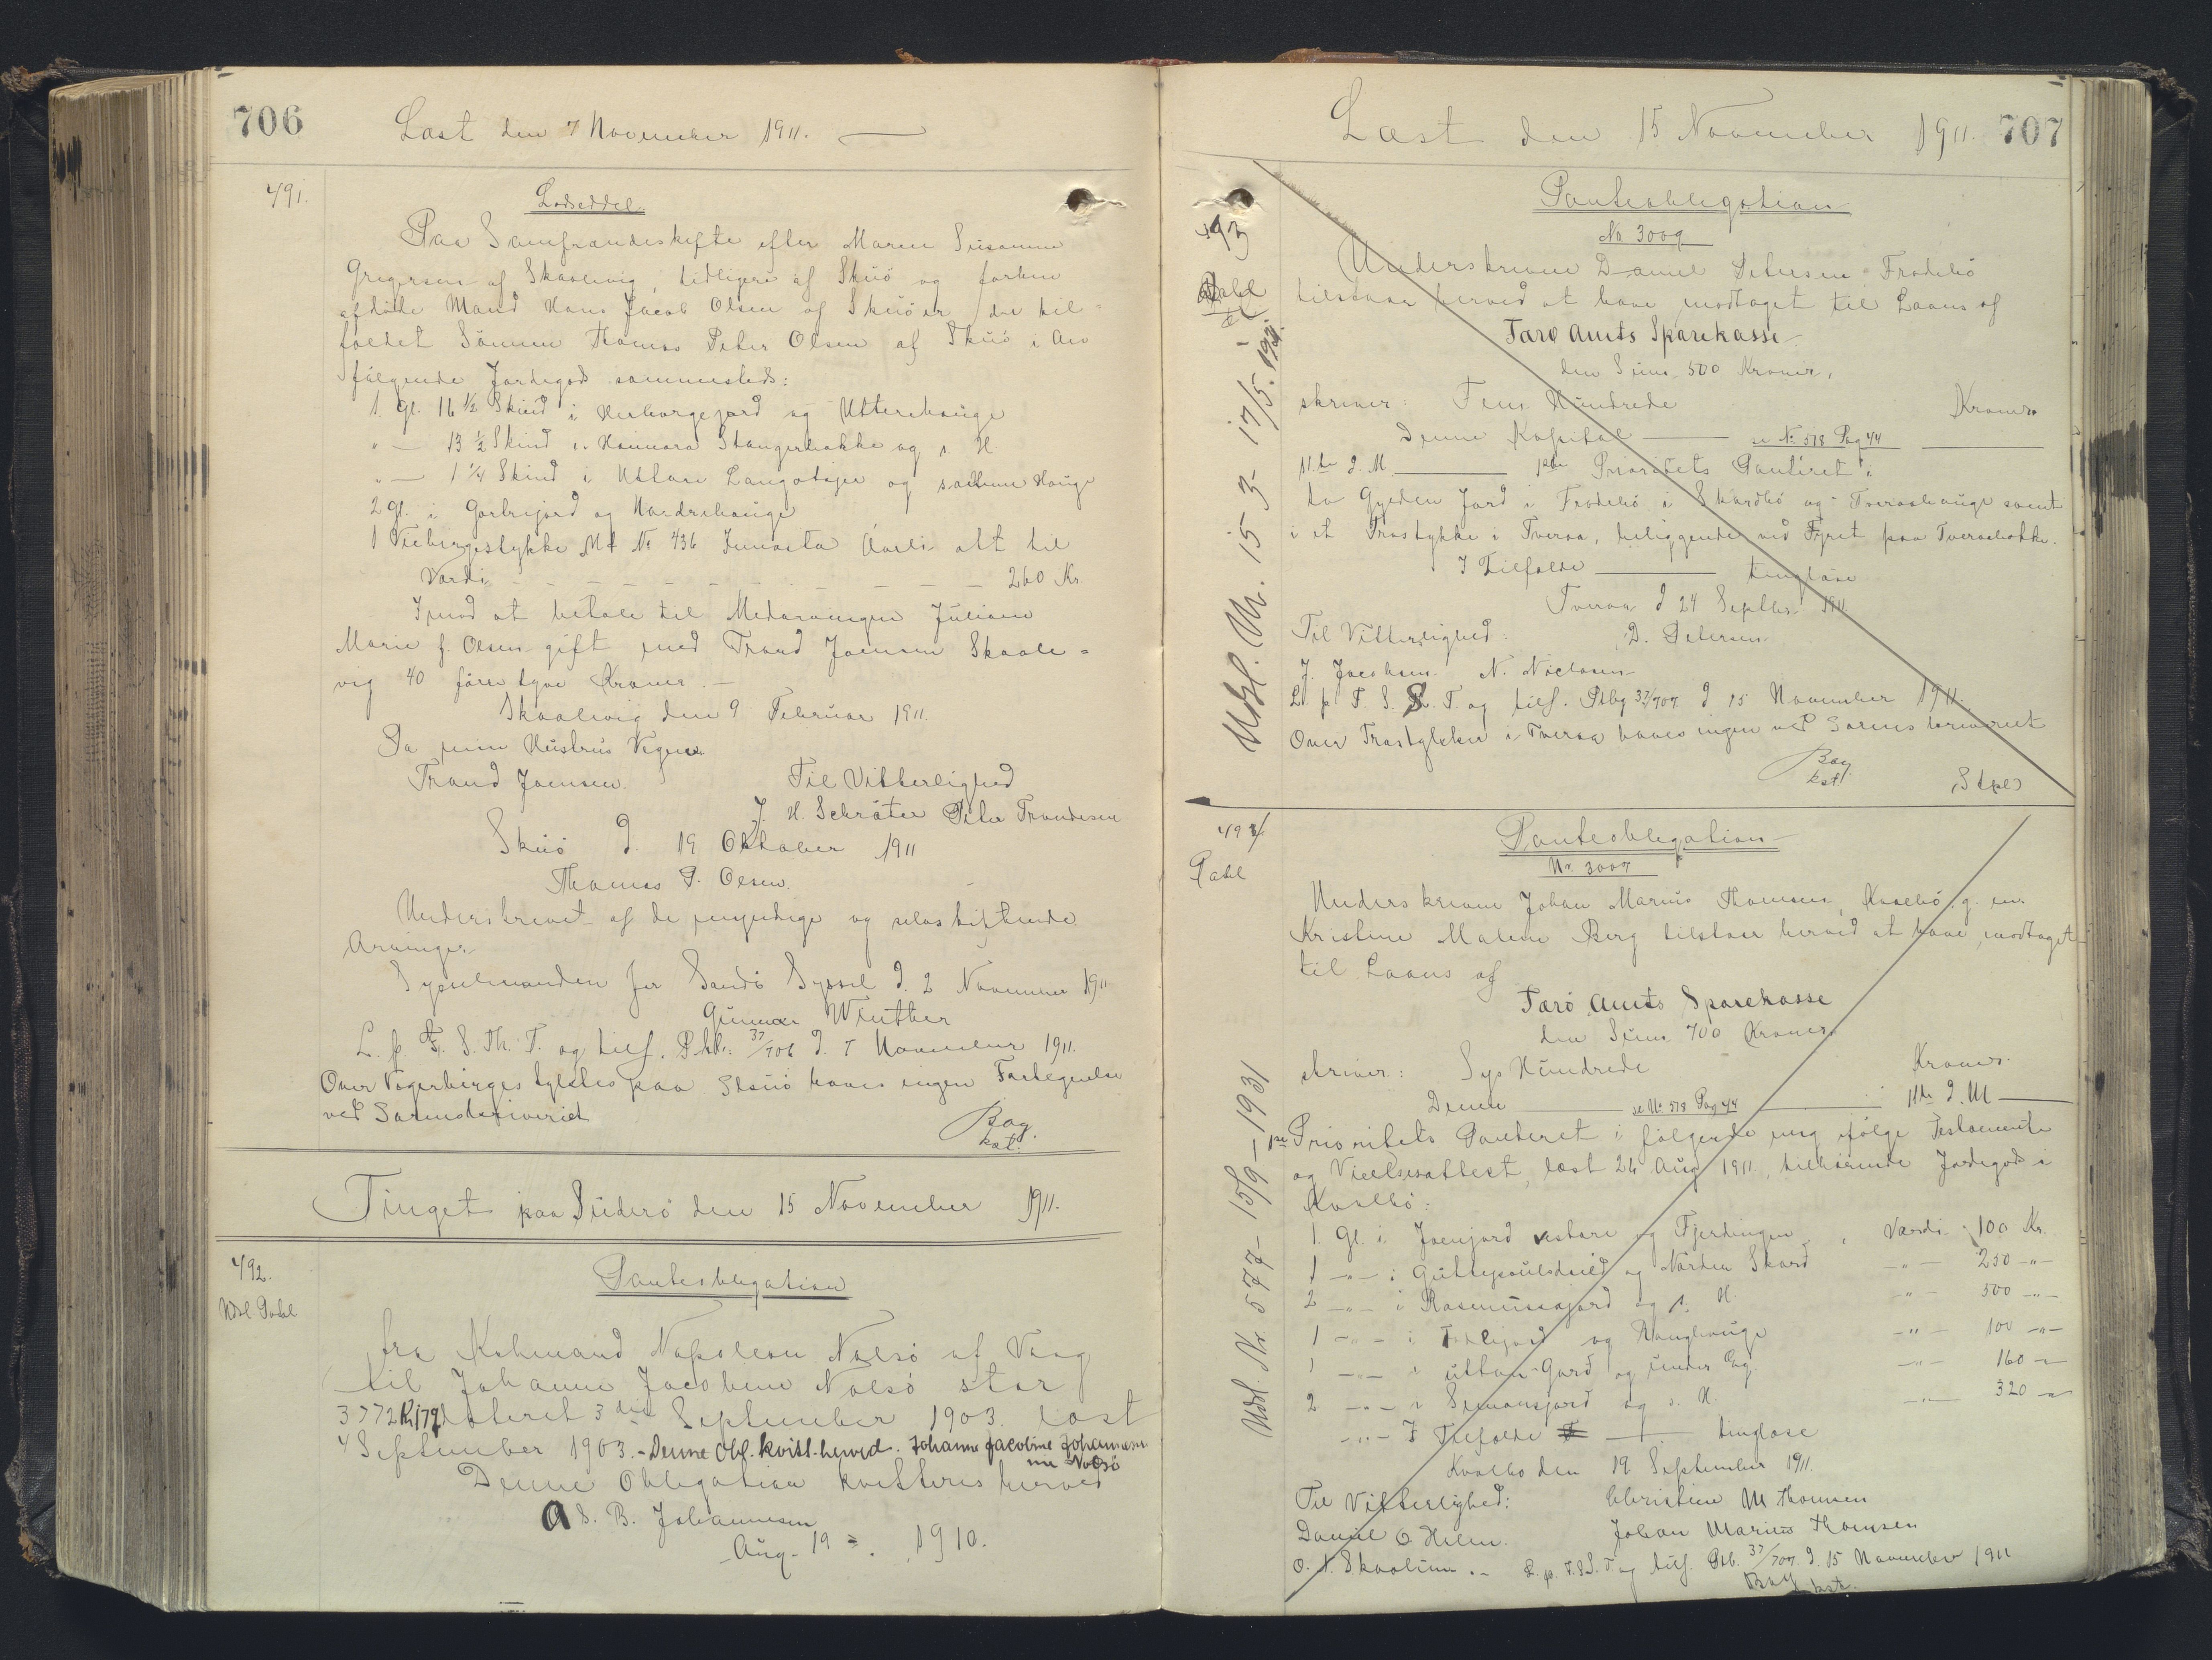 706
Læst den 7 November 1911.
491.
Lodseddel.
Paa Samfrændeskifte efter Maren Susanne
Gregersen af Skaalevig, tidligere af Skuö og forhen
afdöde Mand Hans Jacob Olsen af Skuö er der til-
faldet Sönnen Thomas Peter Olsen af Skuö i Arv
fölgende Jordegods sammesteds:
1 Gl. 16 ½ Skind i Herborgejord og Utterehauge
" — 13 ½ Skind i Hannara Stangerbakke og s. H.
" — 1 ¼ Skind i Uttare Langotije og samme Hauge
2 Gl. i Garbrijord og Nordrehauge
1 Teiebirgestykke Mt. No 436 alt til
Værdi — — — 260 Kr.
Imod at betale til Medarvingen Juliane
Marie f. Olsen gift med Trond Joensen Skaale-
vig 40 fyrretyve Kroner. —
Skaalevig den 9 Februar 1911.
Paa min Hustrus Vegne
Trond Joensen. Til Vitterlighed
J. H. Schröter Peter Trondesen
Skuö d. 19 Oktober 1911
Thomas P. Olsen.
Underskrevet af de myndige og selvskiftende
Arvinger
Sysselmanden for Sandö Syssel d. 2 November 1911
Gunnar Winther
L. p. F. S. Th. T. og tilf. Ptb.: 37/706 d. 7 November 1911.
Over paa Skuö haves ingen Fortegnelse
ved Sorenskriveriet
Bay.
kst.
Tinget paa Suderö den 15 November 1911.
492.
Udsl. Pabl
Panteobligation
fra Købmand Napoleon Nolsö af Vaag
til Johanne Jacobine Nolsö stor
3772 Kr 179 dateret 3die September 1903. læst
4 September 1903. - Denne Obl. kvitt. herved. Johanne Jacobine Johannesen
Nolsö
Denne Obligation kvitteres herved
A S. B. Johannesen
Aug. 19 1910.
Læst den 15. November 1911. 707
493
Udsl. Nr. 153 - 17/5. 19
Panteobligation
No 3009
Underskrevne Daniel Petersen Frodebö
tilstaar herved at have modtaget til Laans af
Færö Amts Sparekasse
den Sum 500 Kroner,
skriver: Fem Hundrede Kroner
Denne Kapital — se No 518 Pag 44
11te d. M. — 1ste Prioritets Panteret i
to Gylden Jord i Frodebö i Skardbö og Tveraahauge samt
i et Træstykke i Tveraa, beliggende ved Fyret paa Tveraabakke.
I Tilfælde — tinglæse
Tveraa d 24 Septbr. 1911
Til Vitterlighed: D. Petersen
J. Jacobsen N. Niclasen
L. p. F. S. S. T. og tilf. Ptbg 37/707 d 15 November 1911.
Over Træstykker i Tveraa haves ingen ved Sorenskriveriet
Bay
kst.
494
Pabl
Udsl. Nr. 577 - 15/9 - 1931
Panteobligation
Nr. 3007
Underskrevne Johan Marius Thomsen, Kvalbö, g. m.
Kristine Malene Berg tilstaar herved at have modtaget
til Laans af
Færö Amts Sparekasse
den Sum 700 Kroner
skriver: Syv Hundrede Kroner.
Denne — se No 518 Pag 44 — 11te d. M —
1ste Prioritets Panteret i fölgende mig ifölge Testamente
og Vielsesattest, læst 24 Aug 1911, tilhörende Jordegods i
Kvalbö:
1. Gl. i Joenjord vestare og Fjerdingen, Værdi 100 Kr.
1 -"- i og Norden Skard -"- 250 -"-
2 -"- i Rasmussajord og s. H. -"- 500 -"-
1 -"- i og -"- 100 -"-
1 -"- i uttan Gard og under Eg -"- 160 -"-
2 -"- i Simonsjord og s. H. -"- 320 -"-
-"- I Tilfælde — tinglæse
Kvalbö den 19 September 1911.
Til Vitterlighed: Christine M Thomsen
Daniel O Holm. Johan Marius Thomsen
O. N. Skaalum. - L. p. F. S S. T. og tilf. Ptb. 37/707. d. 15 November 1911
Bay kst.